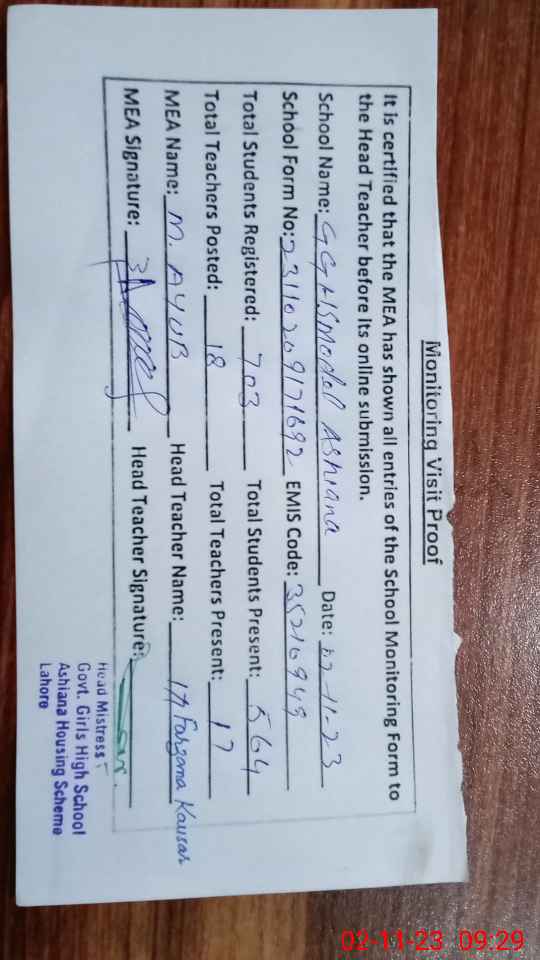 Monitoring Visit Proof
It is certified that the MEA has shown all entries of the School Monitoring Form to
the Head Teacher before its online submission.
School Name: GGHS Model Ashiana Date: 02-11-23
School Form No: 23110209171692 EMIS Code: 35210949
Total Students Registered: 703 Total Students Present: 564
Total Teachers Posted: 18 Total Teachers Present: 17
MEA Name: M. AYUB Head Teacher Name: Farzana Kausar
MEA Signature: Head Teacher Signature:
Head Mistress
Govt. Girls High School
Ashiana Housing Scheme
Lahore
02-11-23 09:29